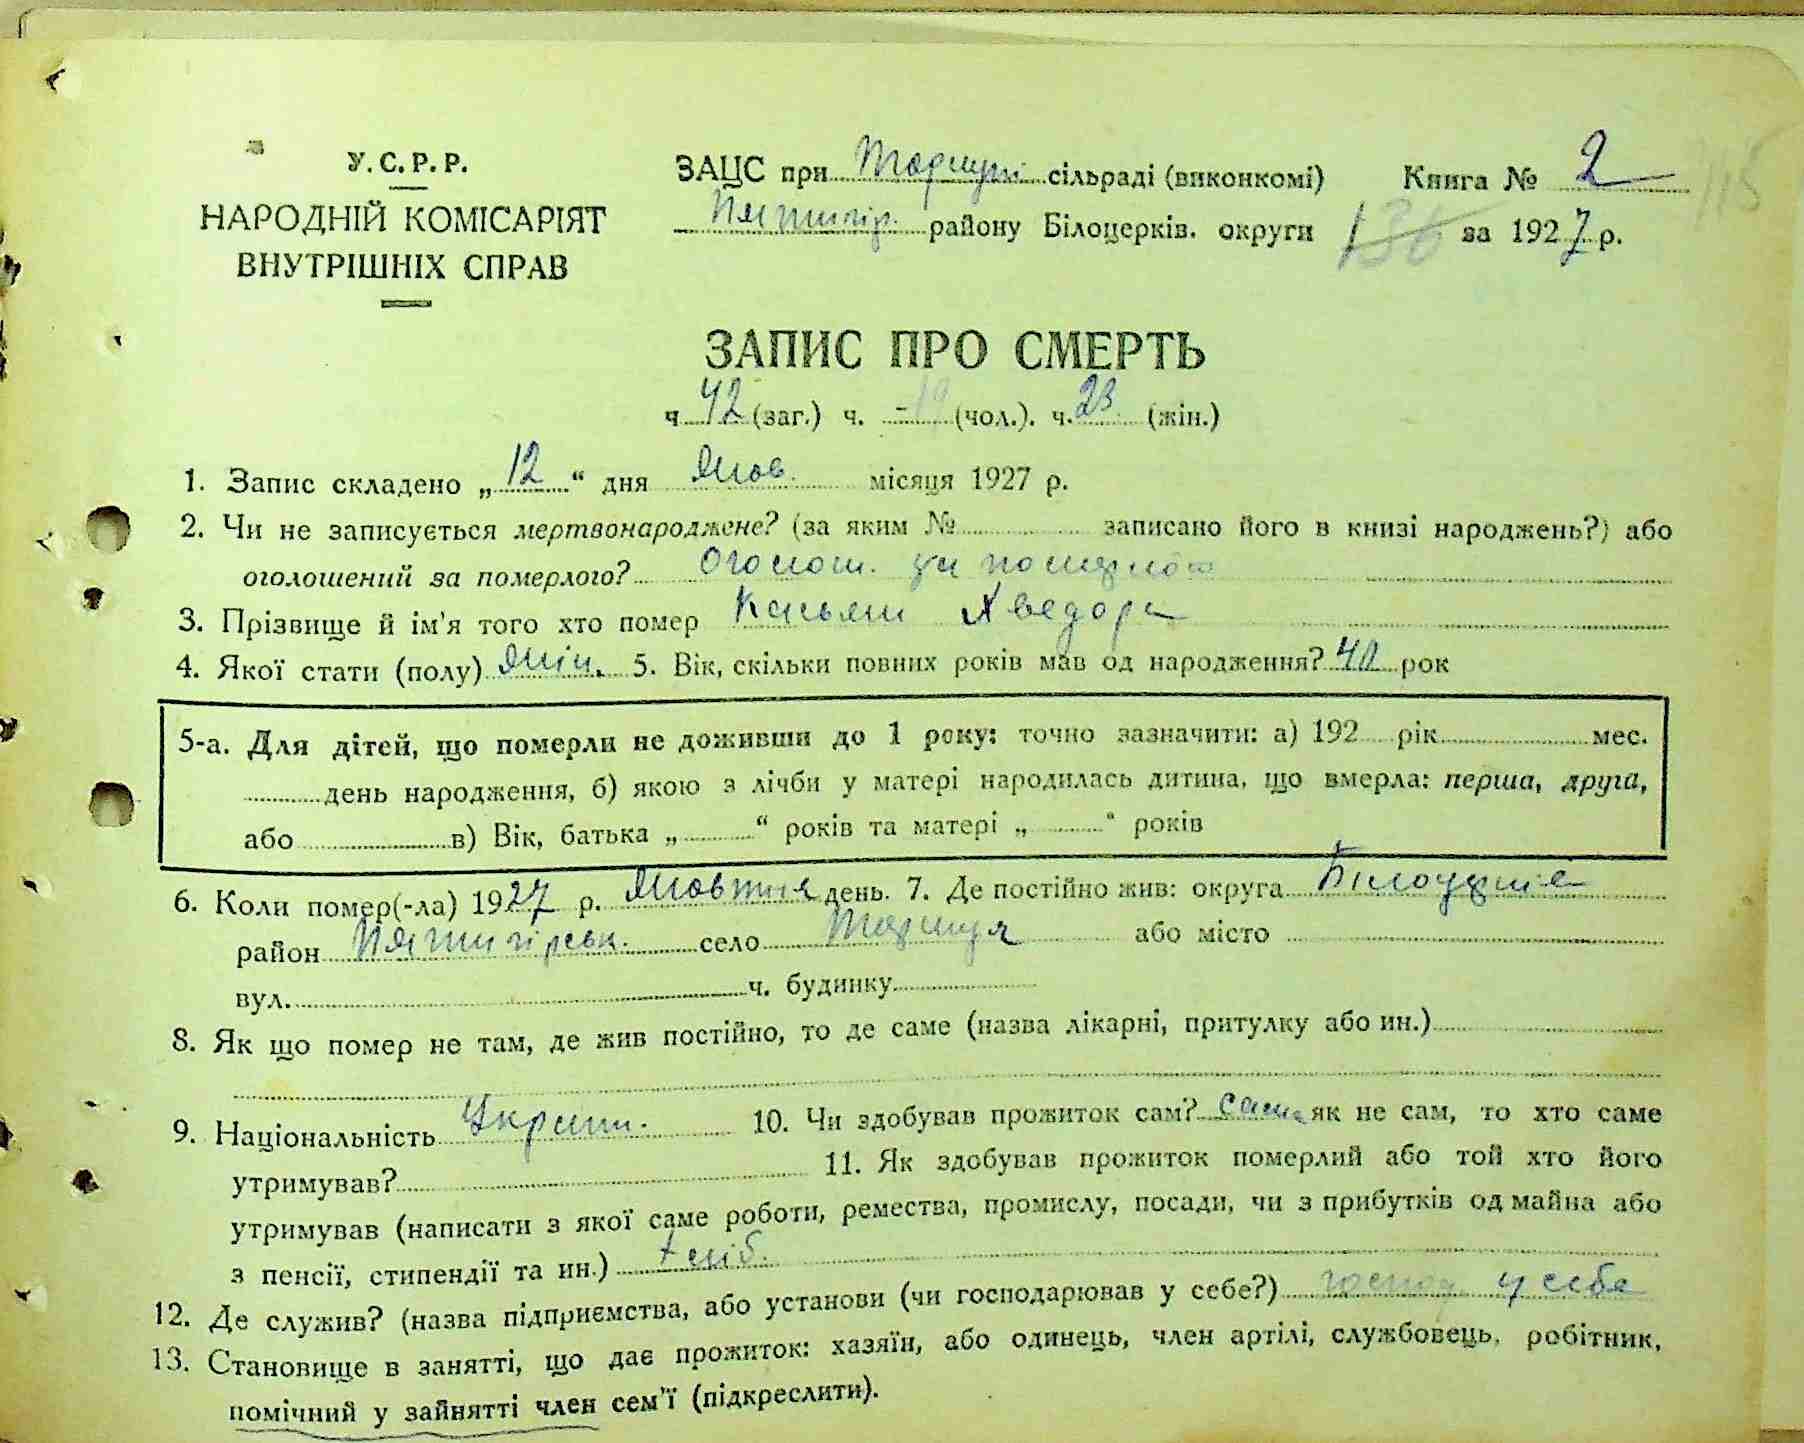 У.С.Р.Р.
НАРОДНІЙ КОМІСАРІЯТ
ВНУТРІШНІХ СПРАВ
ЗАЦС при сільраді (виконкомі) Книга № 2
Пятигір. району Білоцерків. округи 136 за 1927 р.
115
ЗАПИС ПРО СМЕРТЬ
ч 42 (заг.) ч. - (чол.). ч. 23 (жін.)
1. Запис складено „ 12 “ дня Жов. місяця 1927 р.
2. Чи не записується мертвонароджене? (за яким № записано його в книзі народжень?) або
оголошений за померлого? Оголош. за померлого
3. Прізвище й ім'я того хто помер Касьян Хведора
4. Якої стати (полу) Жін. 5. Вік, скільки повних років мав од народження? 40 рок
5-а. Для дітей, що померли не доживши до 1 року: точно зазначити: а) 192 рік мес.
день народження, б) якою з лічби у матері народилась дитина, що вмерла: перша, друга,
або в) Вік, батька „ “ років та матері „ “ років
6. Коли помер(-ла) 1927 р. Жовтня день. 7. Де постійно жив: округа
район Пятигірськ. село або місто
вул. ч. будинку
8. Як що помер не там, де жив постійно, то де саме (назва лікарні, притулку або ин.)
9. Національність Украін. 10. Чи здобував прожиток сам? сама як не сам, то хто саме
утримував? 11. Як здобував прожиток померлий або той хто його
утримував (написати з якої саме роботи, ремества, промислу, посади, чи з прибутків од майна або
з пенсії, стипендії та ин.) хліб.
12. Де служив? (назва підприємства, або установи (чи господарював у себе?) господ у себе
13. Становище в занятті, що дає прожиток: хазяїн, або одинець, член артілі, службовець, робітник,
помічний у зайнятті член сем'ї (підкреслити).